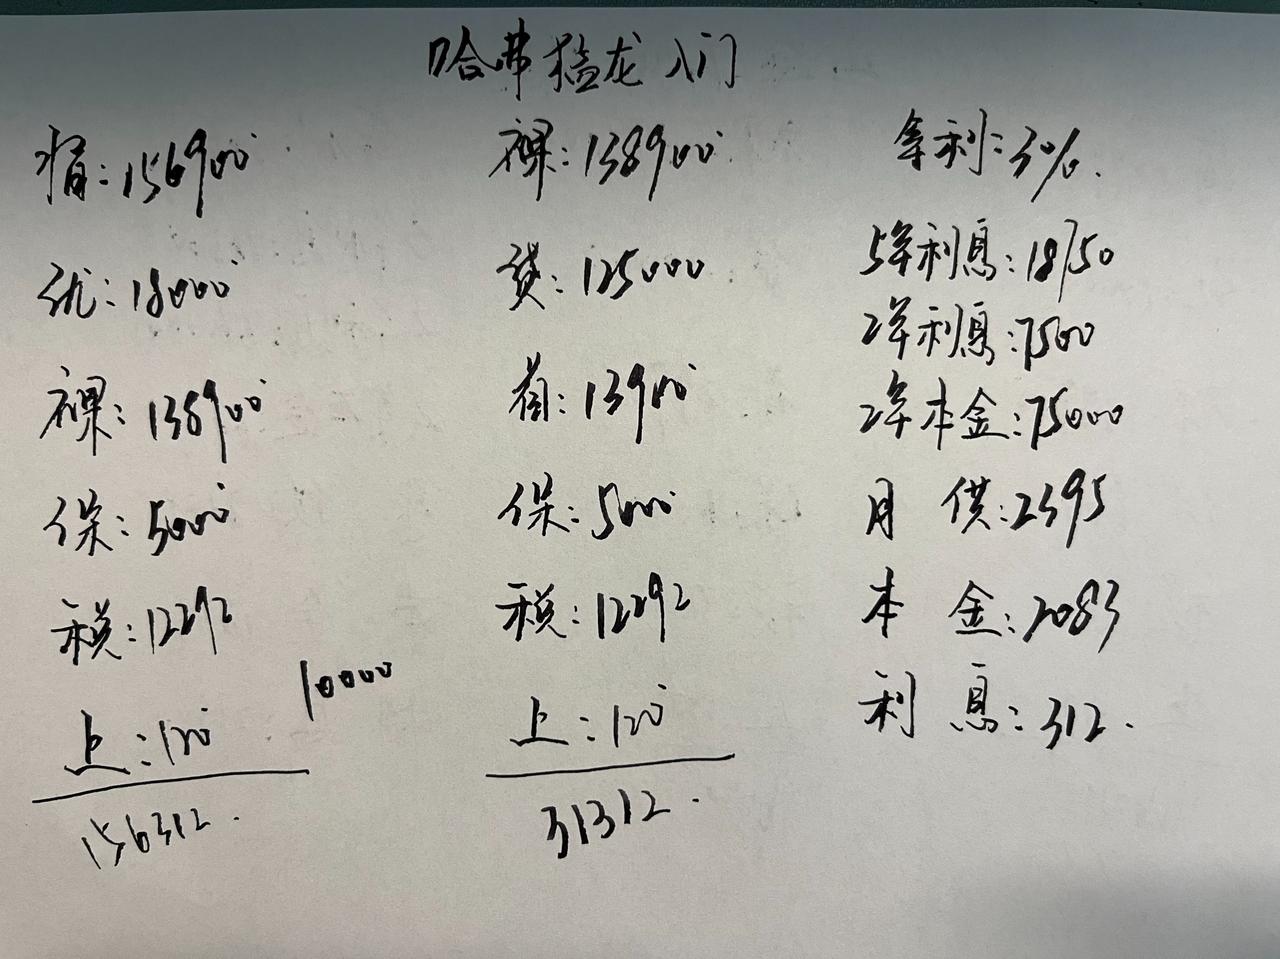 哈弗猛龙入门
指:156900
优:18000
裸:138900
保:5000
税:12292
上:120
10000
156312.
裸:138900
贷:125000
首:13900
保:5000
税:12292
上:120
31312.
年利:3%.
5年利息:18750
2年利息:7500
2年本金:75000
月 供:2395
本 金:2083
利 息:312.